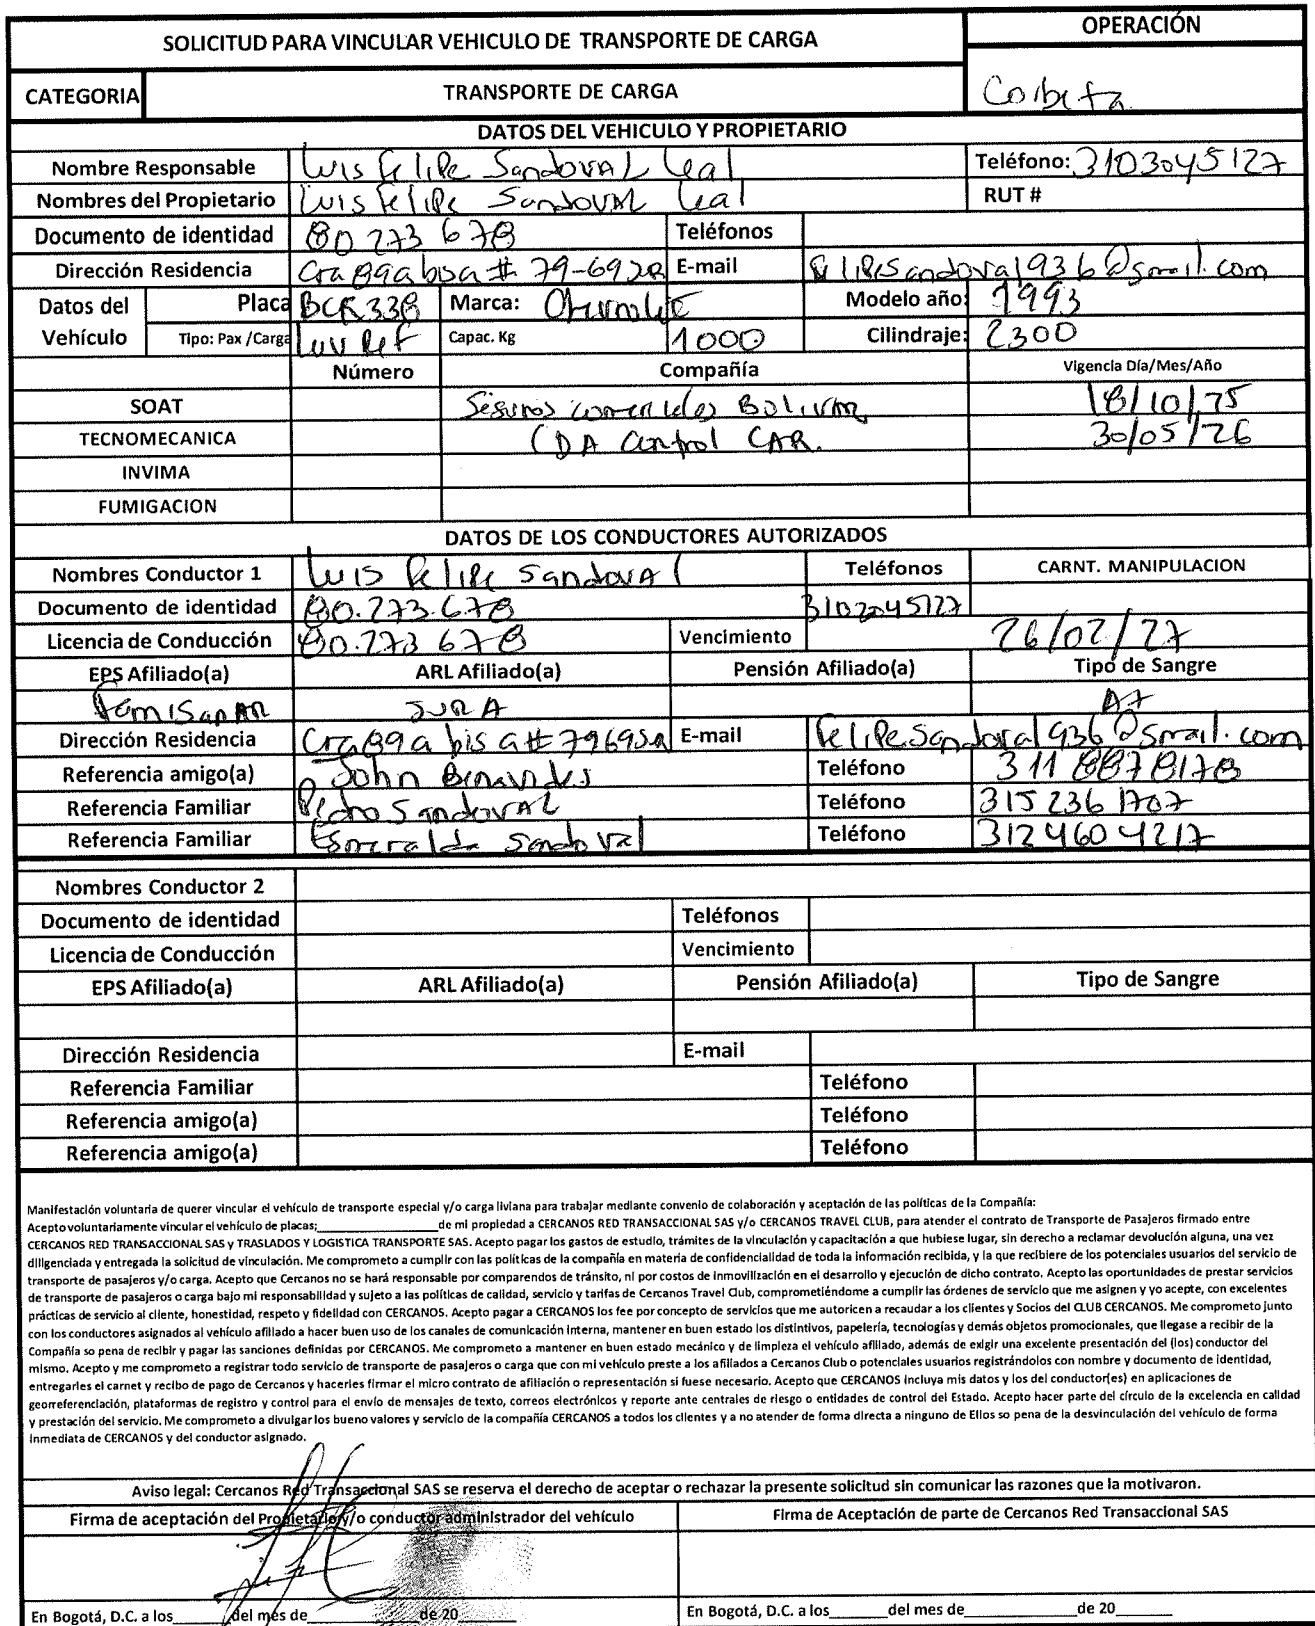 SOLICITUD PARA VINCULAR VEHICULO DE TRANSPORTE DE CARGA
OPERACIÓN
CATEGORIA
TRANSPORTE DE CARGA
Corbeta
DATOS DEL VEHICULO Y PROPIETARIO
Nombre Responsable Luis Felipe Sandoval Leal Teléfono: 3103045127
Nombres del Propietario Luis Felipe Sandoval Leal RUT #
Documento de identidad 80 273 678 Teléfonos
Dirección Residencia Cra 89a bis a # 79-69 E-mail felipesandoval936@gmail.com
Datos del Vehículo Placa BCR338 Marca: Chevrolet Modelo año: 1993
Tipo: Pax /Carga Luv Ref Capac. Kg 1000 Cilindraje: 2300
Número Compañía Vigencia Día/Mes/Año
SOAT Seguros comerciales Bolivar 18/10/25
TECNOMECANICA CDA Control CAR. 30/05/26
INVIMA
FUMIGACION
DATOS DE LOS CONDUCTORES AUTORIZADOS
Nombres Conductor 1 Luis Felipe Sandoval Teléfonos CARNT. MANIPULACION
Documento de identidad 80.273.678 3103045127
Licencia de Conducción 80.273 678 Vencimiento 26/02/27
EPS Afiliado(a) ARL Afiliado(a) Pensión Afiliado(a) Tipo de Sangre
Famisanar SURA A+
Dirección Residencia Cra 89 a bis a # 7969 E-mail felipesandoval936@gmail.com
Referencia amigo(a) John Benavides Teléfono 311 8878178
Referencia Familiar Pedro Sandoval Teléfono 315 236 1707
Referencia Familiar Esmeralda Sandoval Teléfono 312 460 4217
Nombres Conductor 2
Documento de identidad Teléfonos
Licencia de Conducción Vencimiento
EPS Afiliado(a) ARL Afiliado(a) Pensión Afiliado(a) Tipo de Sangre
Dirección Residencia E-mail
Referencia Familiar Teléfono
Referencia amigo(a) Teléfono
Referencia amigo(a) Teléfono
Manifestación voluntaria de querer vincular el vehículo de transporte especial y/o carga liviana para trabajar mediante convenio de colaboración y aceptación de las políticas de la Compañía:
Acepto voluntariamente vincular el vehículo de placas;____________________de mi propiedad a CERCANOS RED TRANSACCIONAL SAS y/o CERCANOS TRAVEL CLUB, para atender el contrato de Transporte de Pasajeros firmado entre
CERCANOS RED TRANSACCIONAL SAS y TRASLADOS Y LOGISTICA TRANSPORTE SAS. Acepto pagar los gastos de estudio, trámites de la vinculación y capacitación a que hubiese lugar, sin derecho a reclamar devolución alguna, una vez
diligenciada y entregada la solicitud de vinculación. Me comprometo a cumplir con las políticas de la compañía en materia de confidencialidad de toda la información recibida, y la que recibiere de los potenciales usuarios del servicio de
transporte de pasajeros y/o carga. Acepto que Cercanos no se hará responsable por comparendos de tránsito, ni por costos de inmovilización en el desarrollo y ejecución de dicho contrato. Acepto las oportunidades de prestar servicios
de transporte de pasajeros o carga bajo mi responsabilidad y sujeto a las políticas de calidad, servicio y tarifas de Cercanos Travel Club, comprometiéndome a cumplir las órdenes de servicio que me asignen y yo acepte, con excelentes
prácticas de servicio al cliente, honestidad, respeto y fidelidad con CERCANOS. Acepto pagar a CERCANOS los fee por concepto de servicios que me autoricen a recaudar a los clientes y Socios del CLUB CERCANOS. Me comprometo junto
con los conductores asignados al vehículo afiliado a hacer buen uso de los canales de comunicación interna, mantener en buen estado los distintivos, papelería, tecnologías y demás objetos promocionales, que llegase a recibir de la
Compañía so pena de recibir y pagar las sanciones definidas por CERCANOS. Me comprometo a mantener en buen estado mecánico y de limpieza el vehículo afiliado, además de exigir una excelente presentación del (los) conductor del
mismo. Acepto y me comprometo a registrar todo servicio de transporte de pasajeros o carga que con mi vehículo preste a los afiliados a Cercanos Club o potenciales usuarios registrándolos con nombre y documento de identidad,
entregarles el carnet y recibo de pago de Cercanos y hacerles firmar el micro contrato de afiliación o representación si fuese necesario. Acepto que CERCANOS incluya mis datos y los del conductor(es) en aplicaciones de
georreferenciación, plataformas de registro y control para el envío de mensajes de texto, correos electrónicos y reporte ante centrales de riesgo o entidades de control del Estado. Acepto hacer parte del círculo de la excelencia en calidad
y prestación del servicio. Me comprometo a divulgar los bueno valores y servicio de la compañía CERCANOS a todos los clientes y a no atender de forma directa a ninguno de Ellos so pena de la desvinculación del vehículo de forma
inmediata de CERCANOS y del conductor asignado.
Aviso legal: Cercanos Red Transaccional SAS se reserva el derecho de aceptar o rechazar la presente solicitud sin comunicar las razones que la motivaron.
Firma de aceptación del Propietario y/o conductor administrador del vehículo
Firma de Aceptación de parte de Cercanos Red Transaccional SAS
En Bogotá, D.C. a los_______del mes de______________de 20_______
En Bogotá, D.C. a los_______del mes de______________de 20_______